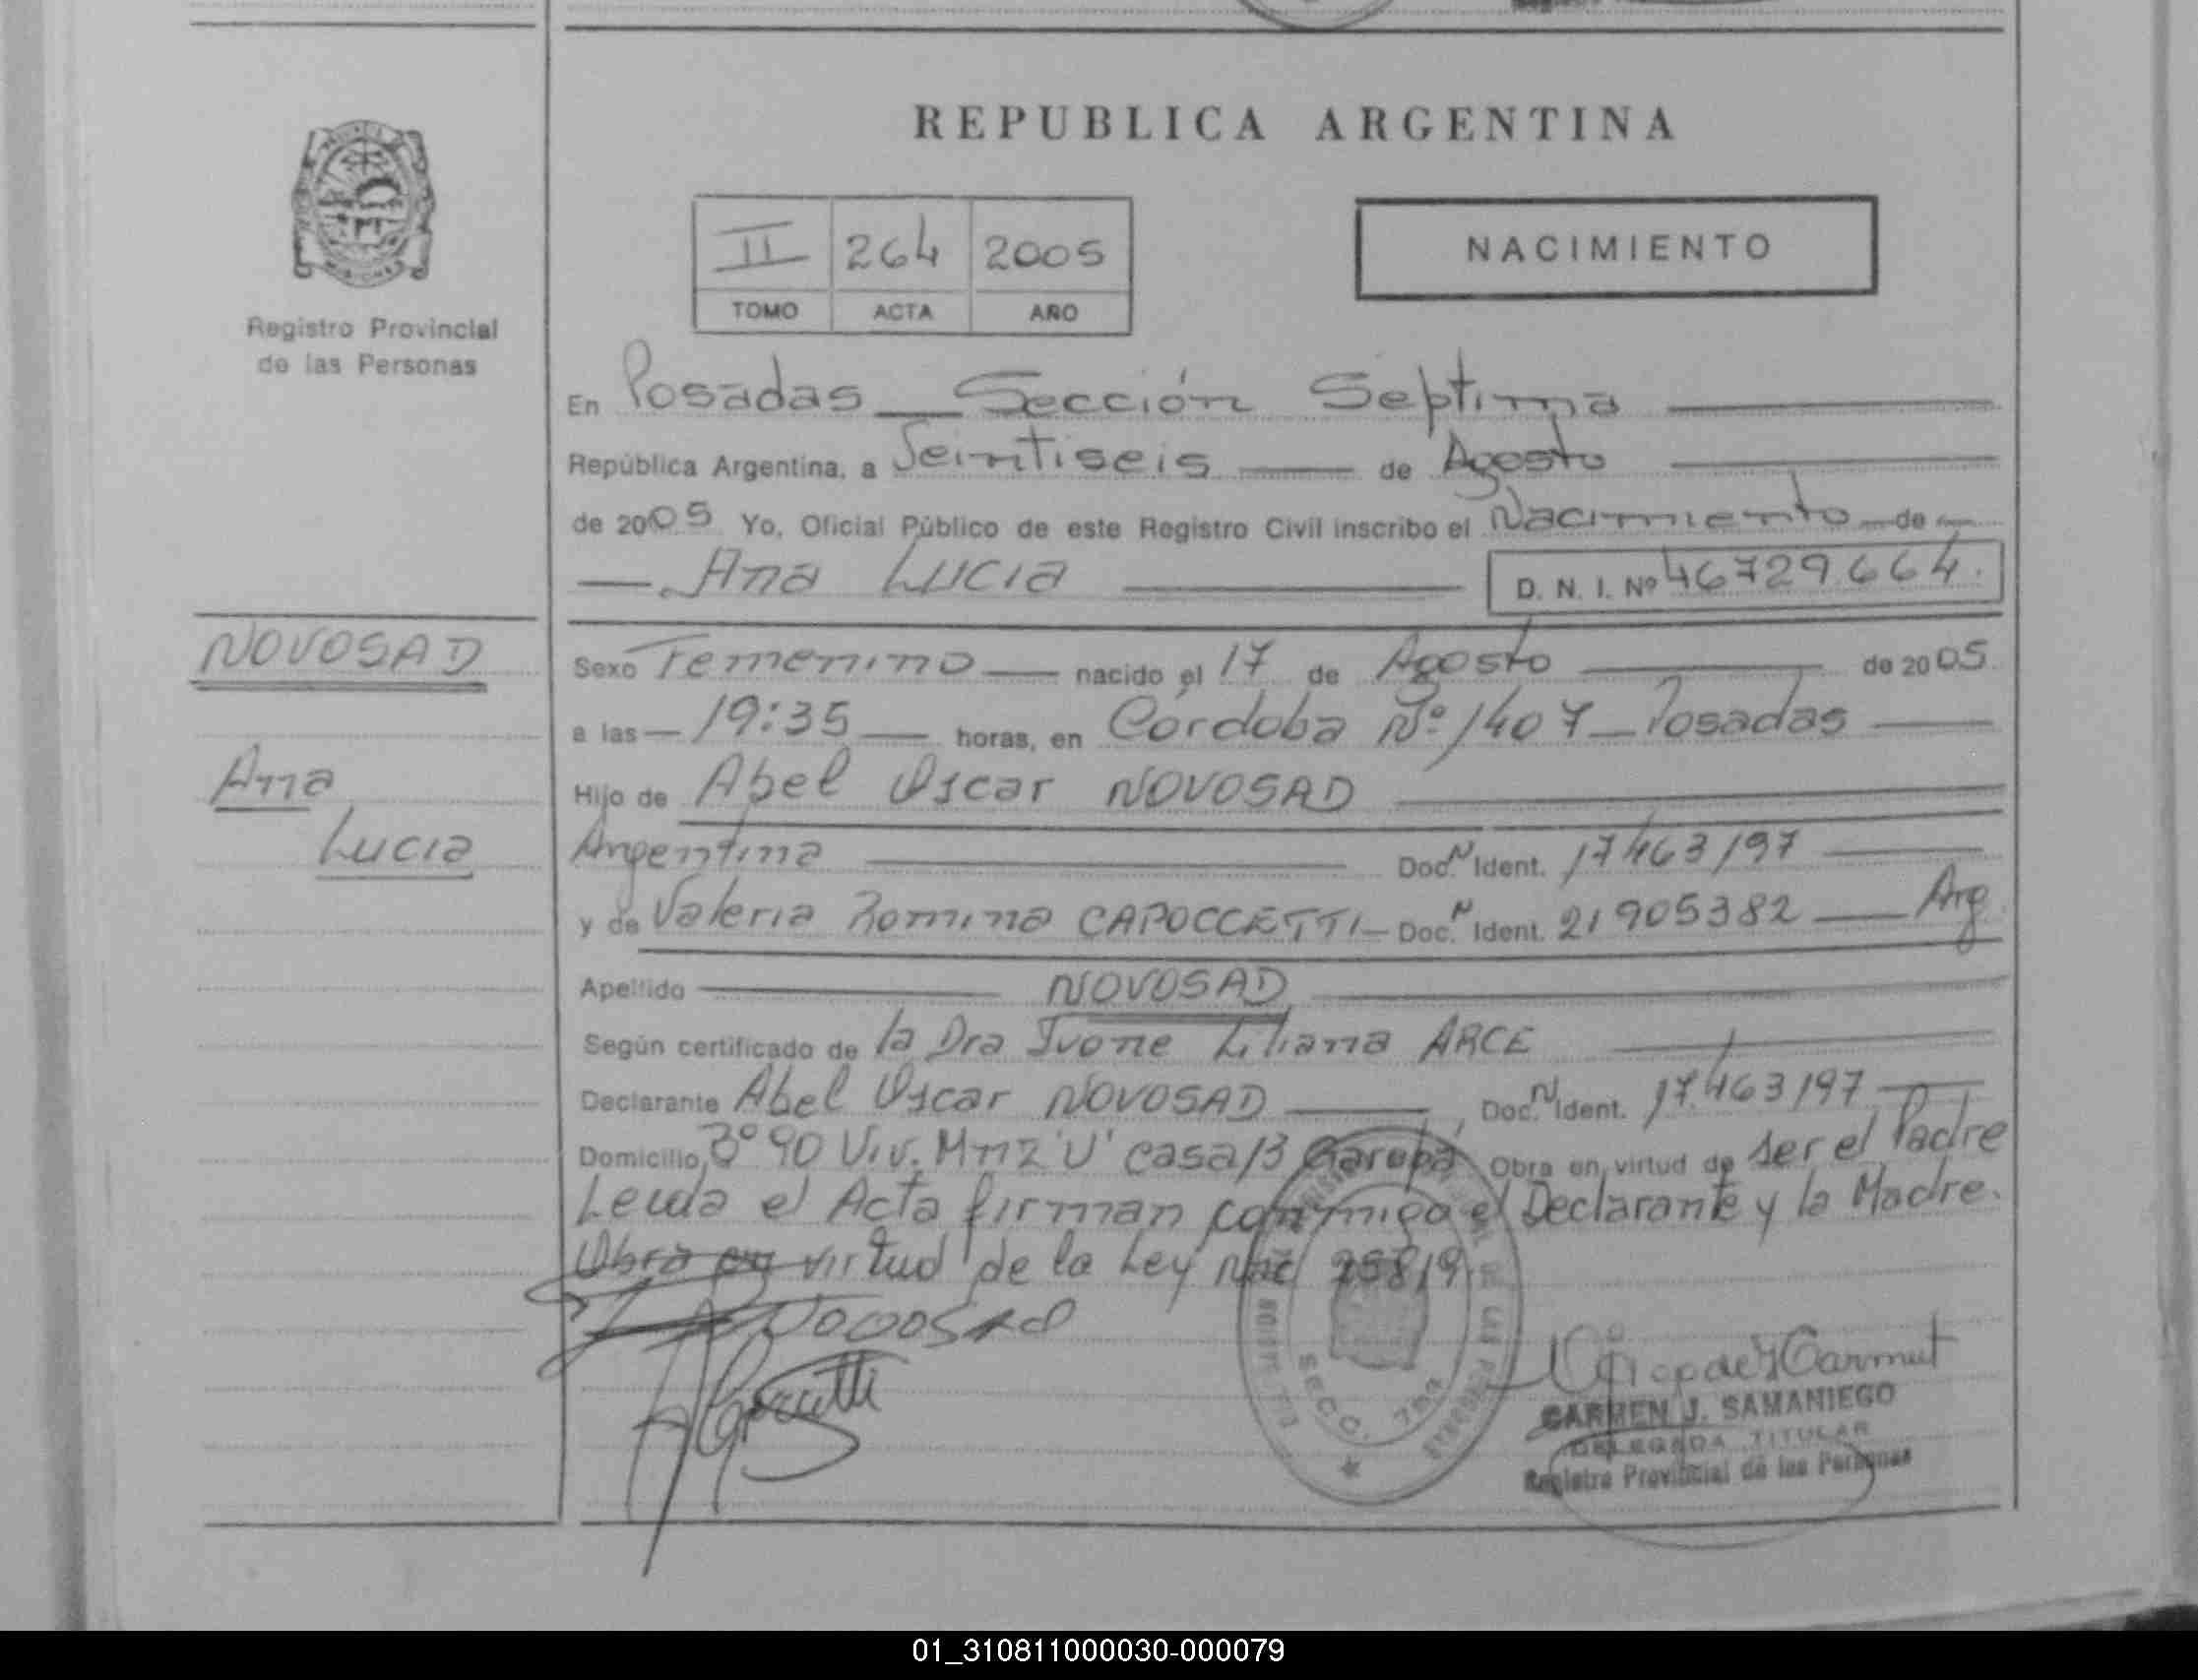 REPUBLICA ARGENTINA
II 264 2005
TOMO ACTA AÑO
NACIMIENTO
Registro Provincial
de las Personas
En Posadas Sección Septima
República Argentina, a Veintiseis de Agosto
de 2005 Yo, Oficial Público de este Registro Civil inscribo el Nacimiento de
Ana Lucia D. N. I. Nº 46729664.
NOVOSAD
Ana
Lucia
Sexo Femenino nacido el 17 de Agosto de 2005
a las 19:35 horas, en Córdoba Nº 1407 Posadas
Hijo de Abel Oscar NOVOSAD
Argentina Doc. N Ident. 17463197
y de Valeria Romina CAPOCCETTI Doc. N Ident. 21905382 Arg
Apellido NOVOSAD
Según certificado de la Dra Ivone Liliana ARCE
Declarante Abel Oscar NOVOSAD Doc. N Ident. 17.463197
Domicilio, Bº 90 Viv. Mnz 'U' casa 13 Garupá Obra en virtud de ser el Padre
Leida el Acta firman conmigo el Declarante y la Madre.
Obra en virtud de la Ley Nac 25819
NOVOSAD
SECC. 7ma
CARMEN J. SAMANIEGO
DELEGADA TITULAR
Registro Provincial de las Personas
01_310811000030-000079